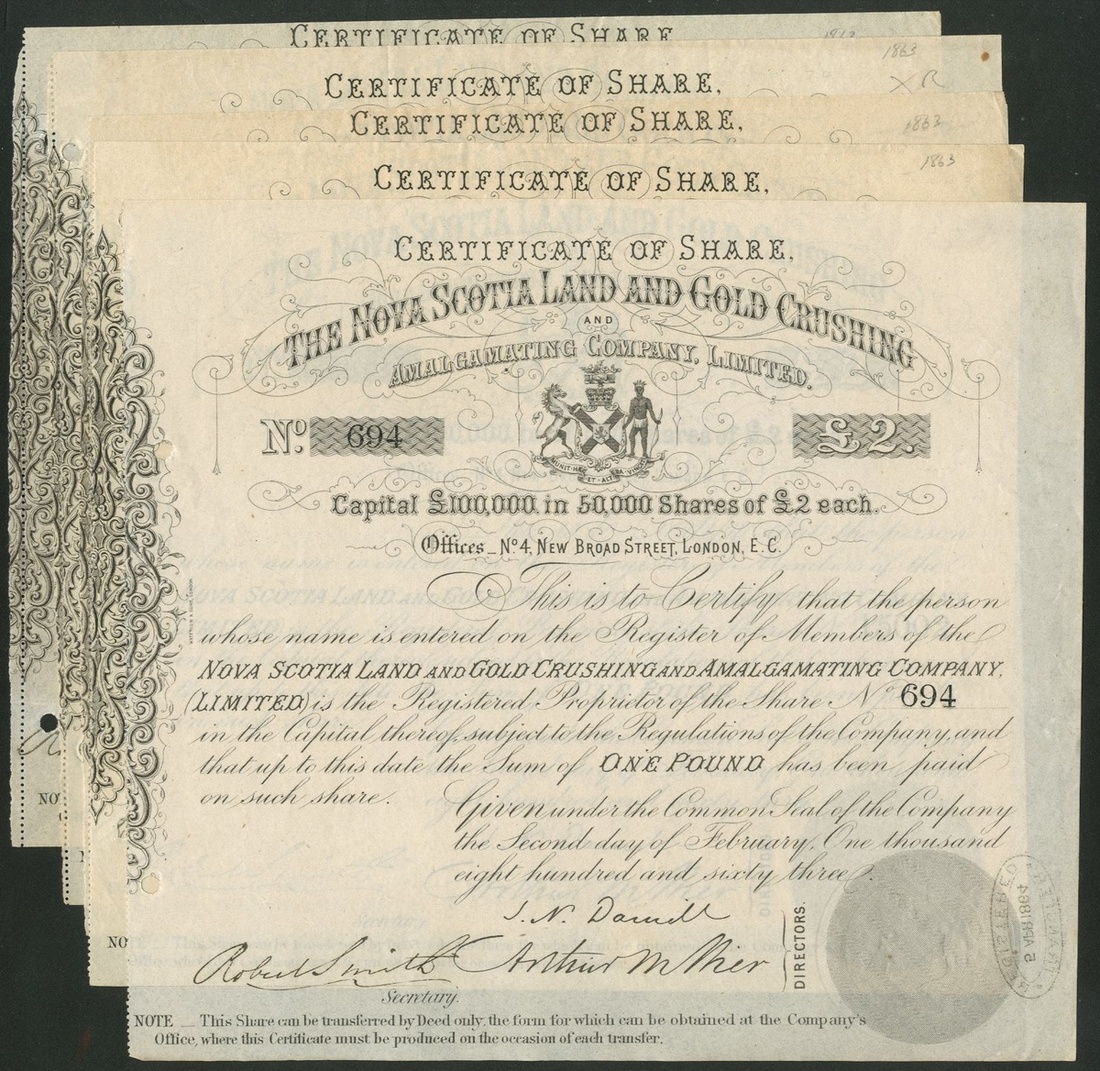 CERTIFICATE OF SHARE
CERTIFICATE OF SHARE,
1863
X R
CERTIFICATE OF SHARE,
1863
CERTIFICATE OF SHARE,
1863
CERTIFICATE OF SHARE,
THE NOVA SCOTIA LAND AND GOLD CRUSHING
AND
AMALGAMATING COMPANY, LIMITED.
No. 694
£2.
MUNIT HÆC ET ALTERA VINCIT
Capital £100,000, in 50,000 Shares of £2 each.
Offices _ No 4, NEW BROAD STREET, LONDON, E.C.
This is to Certify that the person
whose name is entered on the Register of Members of the
NOVA SCOTIA LAND AND GOLD CRUSHING AND AMALGAMATING COMPANY,
(LIMITED) is the Registered Proprietor of the Share No 694
in the Capital thereof, subject to the Regulations of the Company, and
that up to this date the Sum of ONE POUND has been paid
on such share.
Given under the Common Seal of the Company
the Second day of February, One thousand
eight hundred and sixty three.
Robert Smith
Secretary.
DIRECTORS.
REGISTERED
5 APR 1864
NO
NO
NOTE _ This Share can be transferred by Deed only, the form for which can be obtained at the Company's
Office, where this Certificate must be produced on the occasion of each transfer.